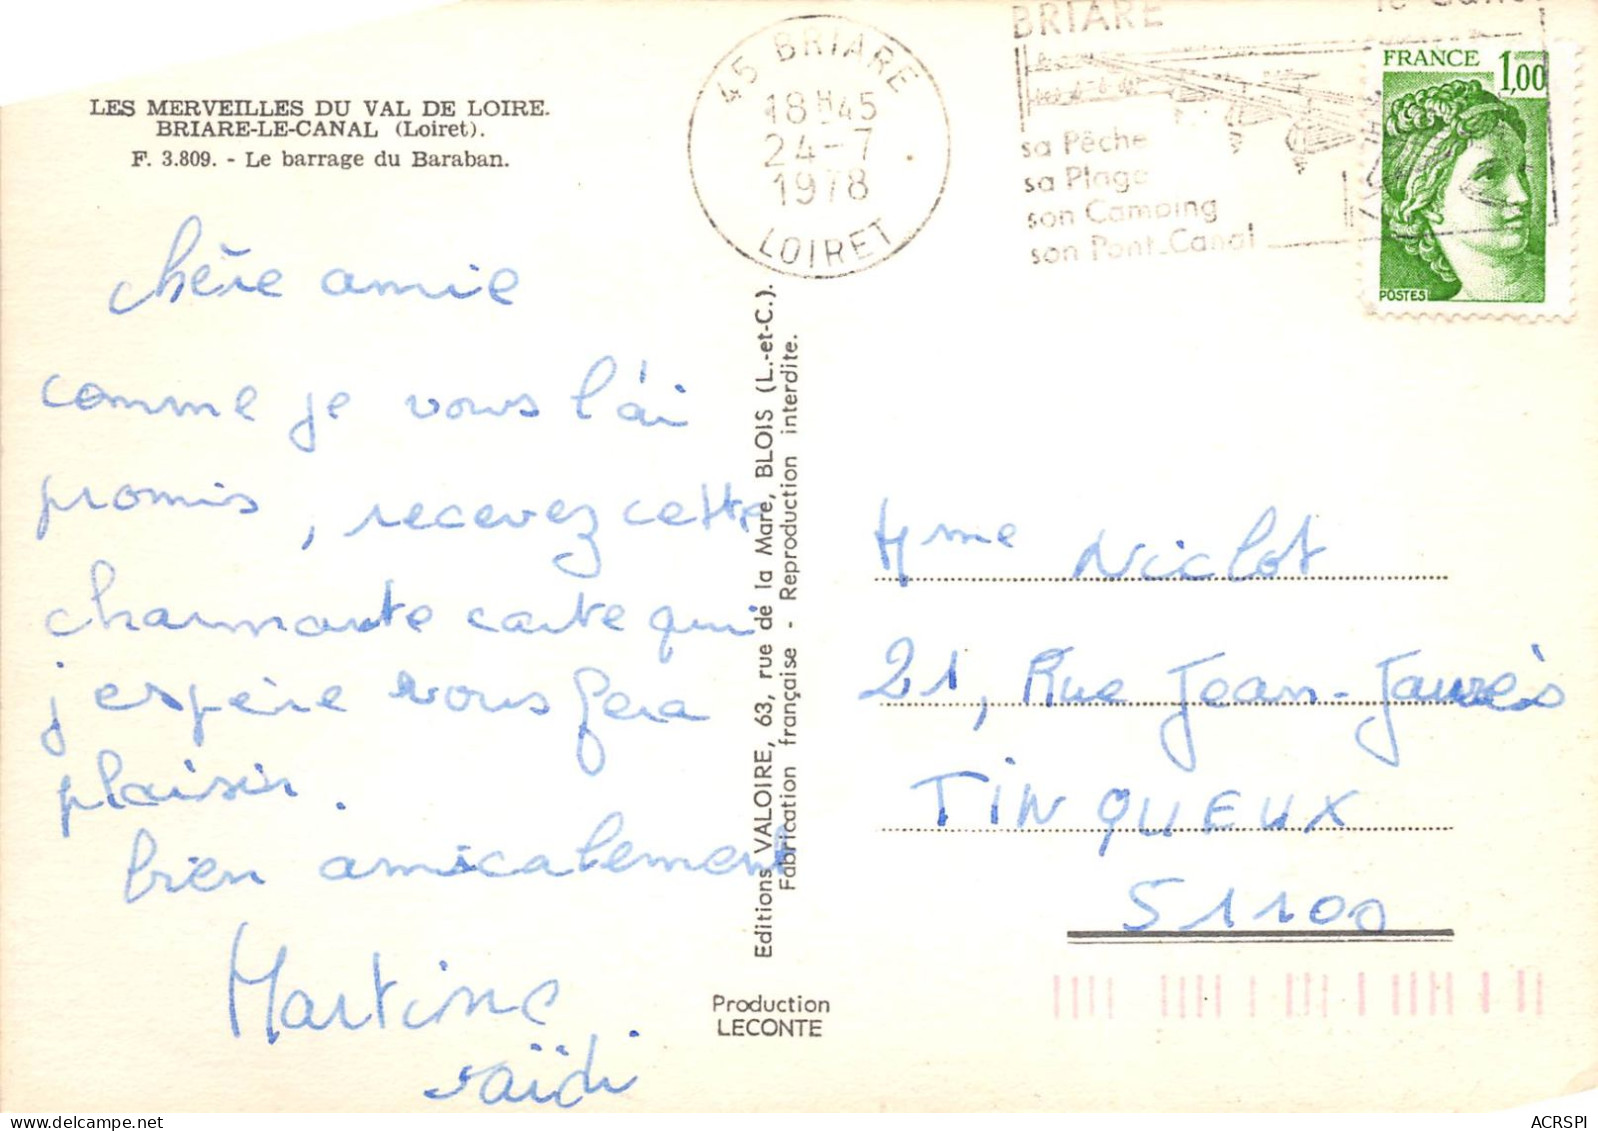 LES MERVEILLES DU VAL DE LOIRE.
BRIARE-LE-CANAL (Loiret).
F. 3.809. - Le barrage du Baraban.
chère amie
comme je vous l'ai
promis, recevez cette
charmante carte qui
j'espère vous fera
plaisir.
bien amicalement
Martine
saïdi
Editions VALOIRE, 63, rue de la Mare, BLOIS (L.-et-C.).
Fabrication française - Reproduction interdite.
Production
LECONTE
45 BRIARE
18H45
24-7
1978
LOIRET
BRIARE
sa Pêche
sa Plage
son Camping
son Pont-Canal
FRANCE 1,00
POSTES
Mme Niclot
21, Rue Jean-Jaurès
TINQUEUX
51100
ACRSPI